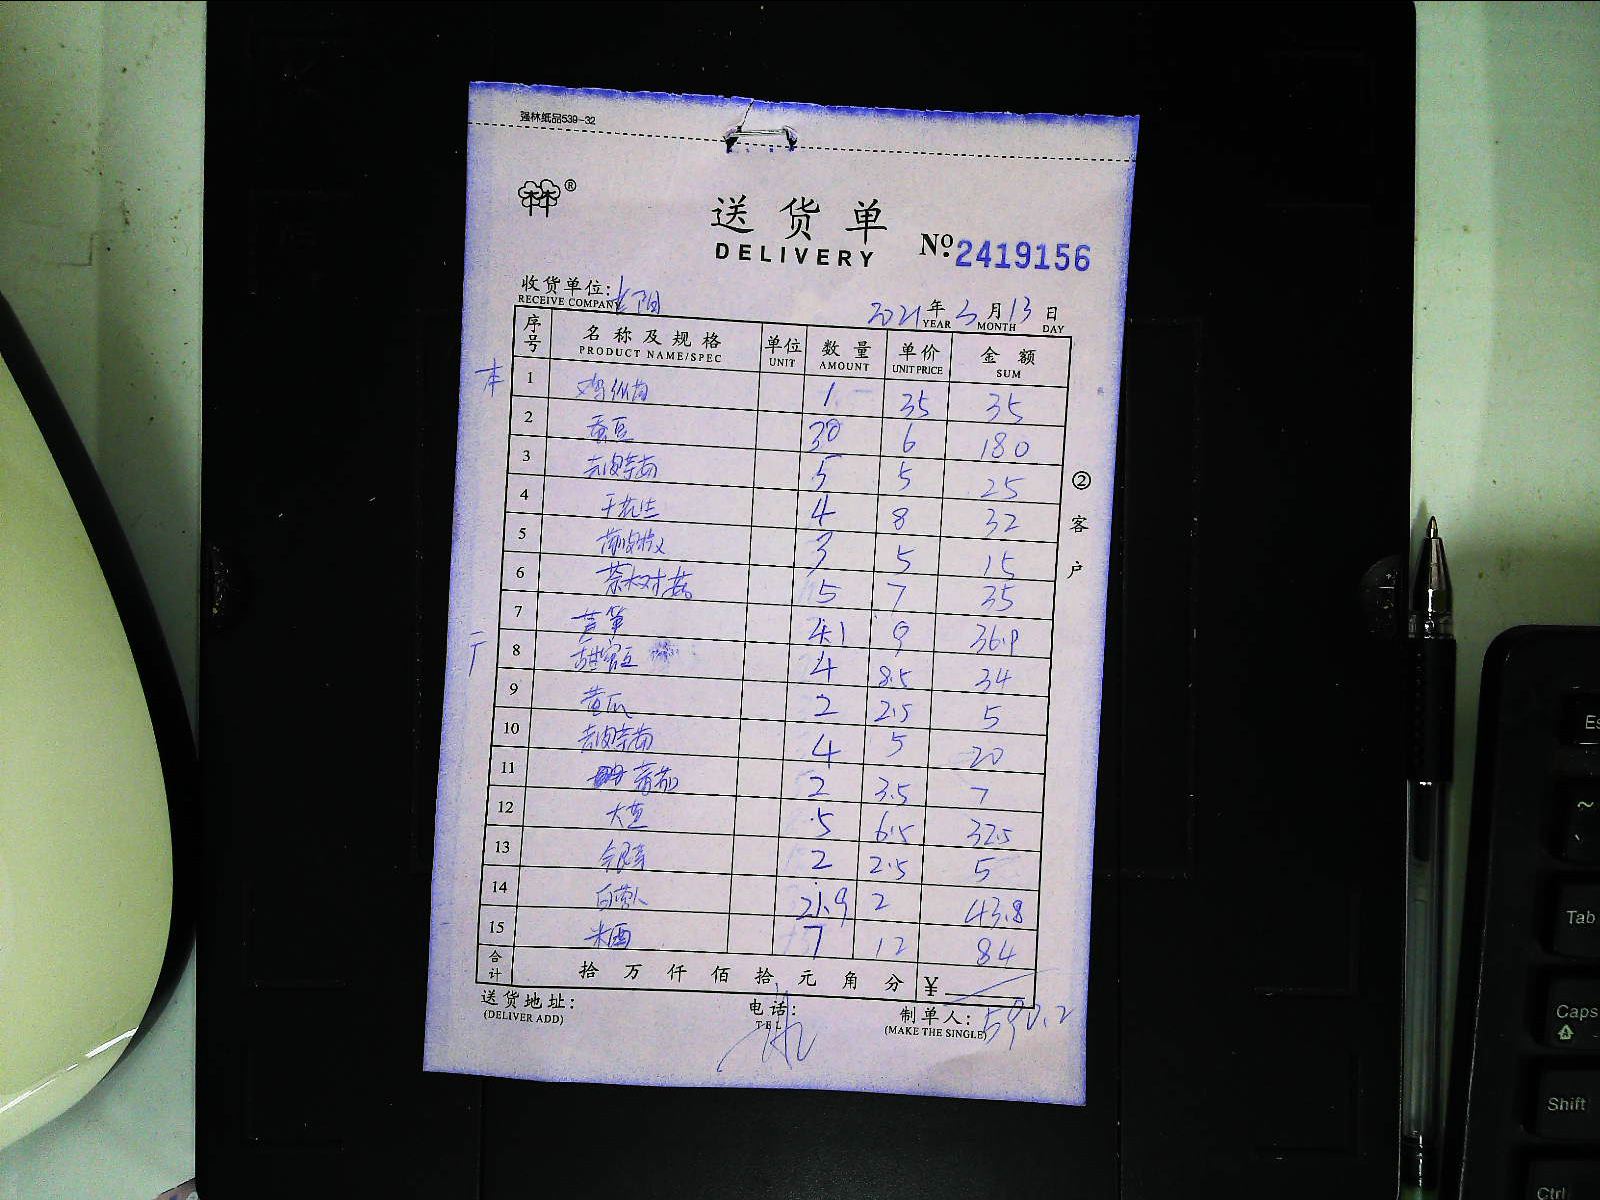 强林纸品539-32
®
送货单
DELIVERY
No. 2419156
收货单位: 阳
RECEIVE COMPANY
2021年3月13日
YEAR MONTH DAY
序号 名称及规格 单位 数量 单价 金额
PRODUCT NAME/SPEC UNIT AMOUNT UNIT PRICE SUM
1 1 35 35
2 蚕豆 30 6 180
3 5 5 25
4 干花生 4 8 32
5 3 5 15
6 茶树菇 5 7 35
7 芦笋 4.1 9 36.9
8 甜蜜豆 4 8.5 34
9 黄瓜 2 2.5 5
10 4 5 20
11 番茄 2 3.5 7
12 大葱 5 6.5 32.5
13 银芽 2 2.5 5
14 白萝卜 21.9 2 43.8
15 米酒 7 12 84
合计 拾万仟佰拾元角分 ¥
590.2
送货地址: 电话: 制单人:
(DELIVER ADD) TEL (MAKE THE SINGLE)
②客户